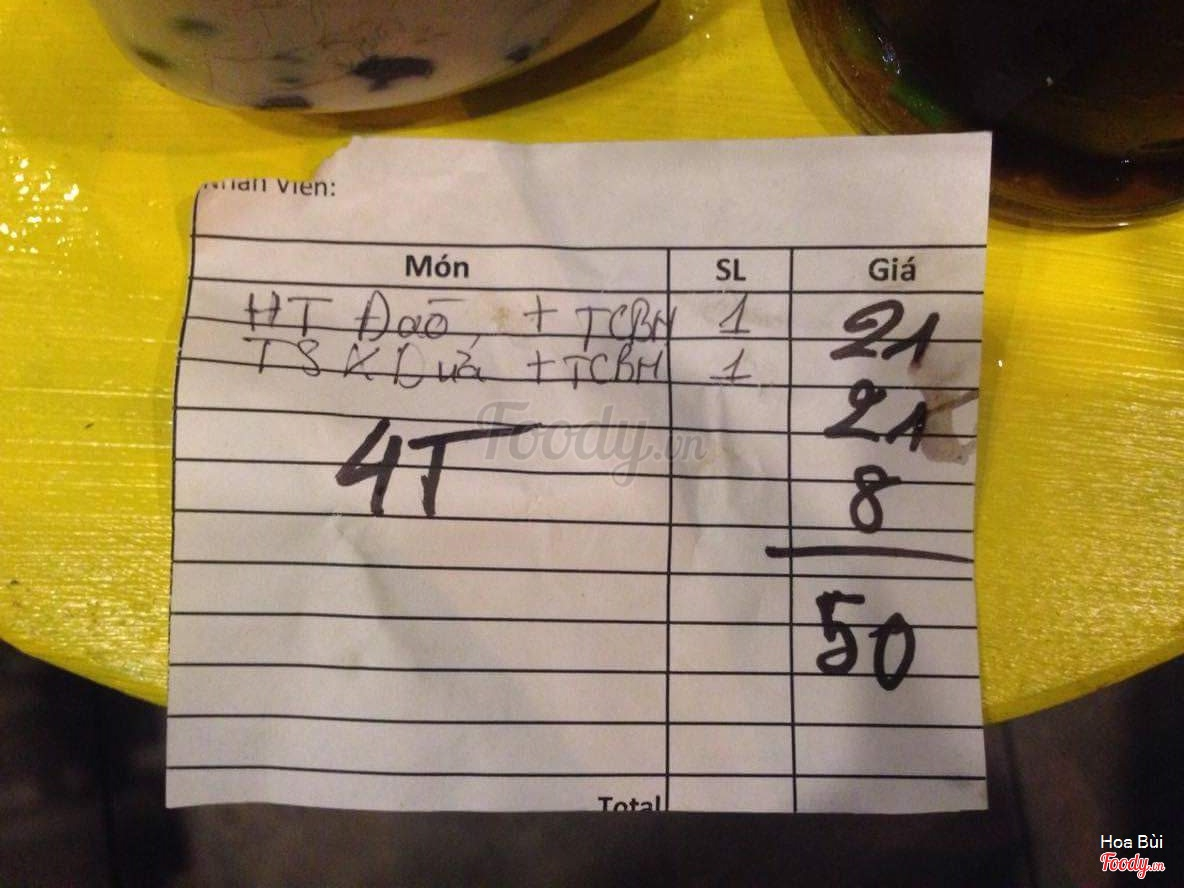 Nhân Viên:
Món SL Giá
HT Đào + TCBH 1 21
TS K Dừa + TCBH 1 21
4T 8
50
Foody.vn
Total
Hoa Bùi
Foody.vn